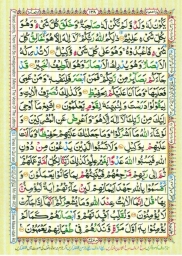 يَكُوْنُ لَهٗ وَلَدٌ وَّلَمْ تَكُنْ لَّهٗ صَاحِبَةٌ وَخَلَقَ كُلَّ شَيْءٍ وَهُوَ
بِكُلِّ شَيْءٍ عَلِيْمٌ ذٰلِكُمُ اللّٰهُ رَبُّكُمْ لَآ اِلٰهَ اِلَّا هُوَ خَالِقُ كُلِّ
شَيْءٍ فَاعْبُدُوْهُ وَهُوَ عَلٰى كُلِّ شَيْءٍ وَّكِيْلٌ لَا تُدْرِكُهُ
الْاَبْصَارُ وَهُوَ يُدْرِكُ الْاَبْصَارَ وَهُوَ اللَّطِيْفُ الْخَبِيْرُ قَدْ
جَآءَكُمْ بَصَآئِرُ مِنْ رَّبِّكُمْ فَمَنْ اَبْصَرَ فَلِنَفْسِهٖ وَمَنْ عَمِيَ
فَعَلَيْهَا وَمَآ اَنَا عَلَيْكُمْ بِحَفِيْظٍ وَكَذٰلِكَ نُصَرِّفُ الْاٰيٰتِ وَ
لِيَقُوْلُوْا دَرَسْتَ وَلِنُبَيِّنَهٗ لِقَوْمٍ يَّعْلَمُوْنَ اِتَّبِعْ مَآ اُوْحِيَ
اِلَيْكَ مِنْ رَّبِّكَ لَآ اِلٰهَ اِلَّا هُوَ وَاَعْرِضْ عَنِ الْمُشْرِكِيْنَ وَلَوْ
شَآءَ اللّٰهُ مَآ اَشْرَكُوْا وَمَا جَعَلْنٰكَ عَلَيْهِمْ حَفِيْظًا وَمَآ اَنْتَ
عَلَيْهِمْ بِوَكِيْلٍ وَلَا تَسُبُّوا الَّذِيْنَ يَدْعُوْنَ مِنْ دُوْنِ اللّٰهِ
فَيَسُبُّوا اللّٰهَ عَدْوًۢا بِغَيْرِ عِلْمٍ كَذٰلِكَ زَيَّنَّا لِكُلِّ اُمَّةٍ عَمَلَهُمْ
ثُمَّ اِلٰى رَبِّهِمْ مَّرْجِعُهُمْ فَيُنَبِّئُهُمْ بِمَا كَانُوْا يَعْمَلُوْنَ وَ
اَقْسَمُوْا بِاللّٰهِ جَهْدَ اَيْمَانِهِمْ لَئِنْ جَآءَتْهُمْ اٰيَةٌ لَّيُؤْمِنُنَّ
بِهَا قُلْ اِنَّمَا الْاٰيٰتُ عِنْدَ اللّٰهِ وَمَا يُشْعِرُكُمْ اَنَّهَآ اِذَا جَآءَتْ
لَا يُؤْمِنُوْنَ وَنُقَلِّبُ اَفْئِدَتَهُمْ وَاَبْصَارَهُمْ كَمَا لَمْ
يُؤْمِنُوْا بِهٖٓ اَوَّلَ مَرَّةٍ وَّنَذَرُهُمْ فِيْ طُغْيَانِهِمْ يَعْمَهُوْنَ